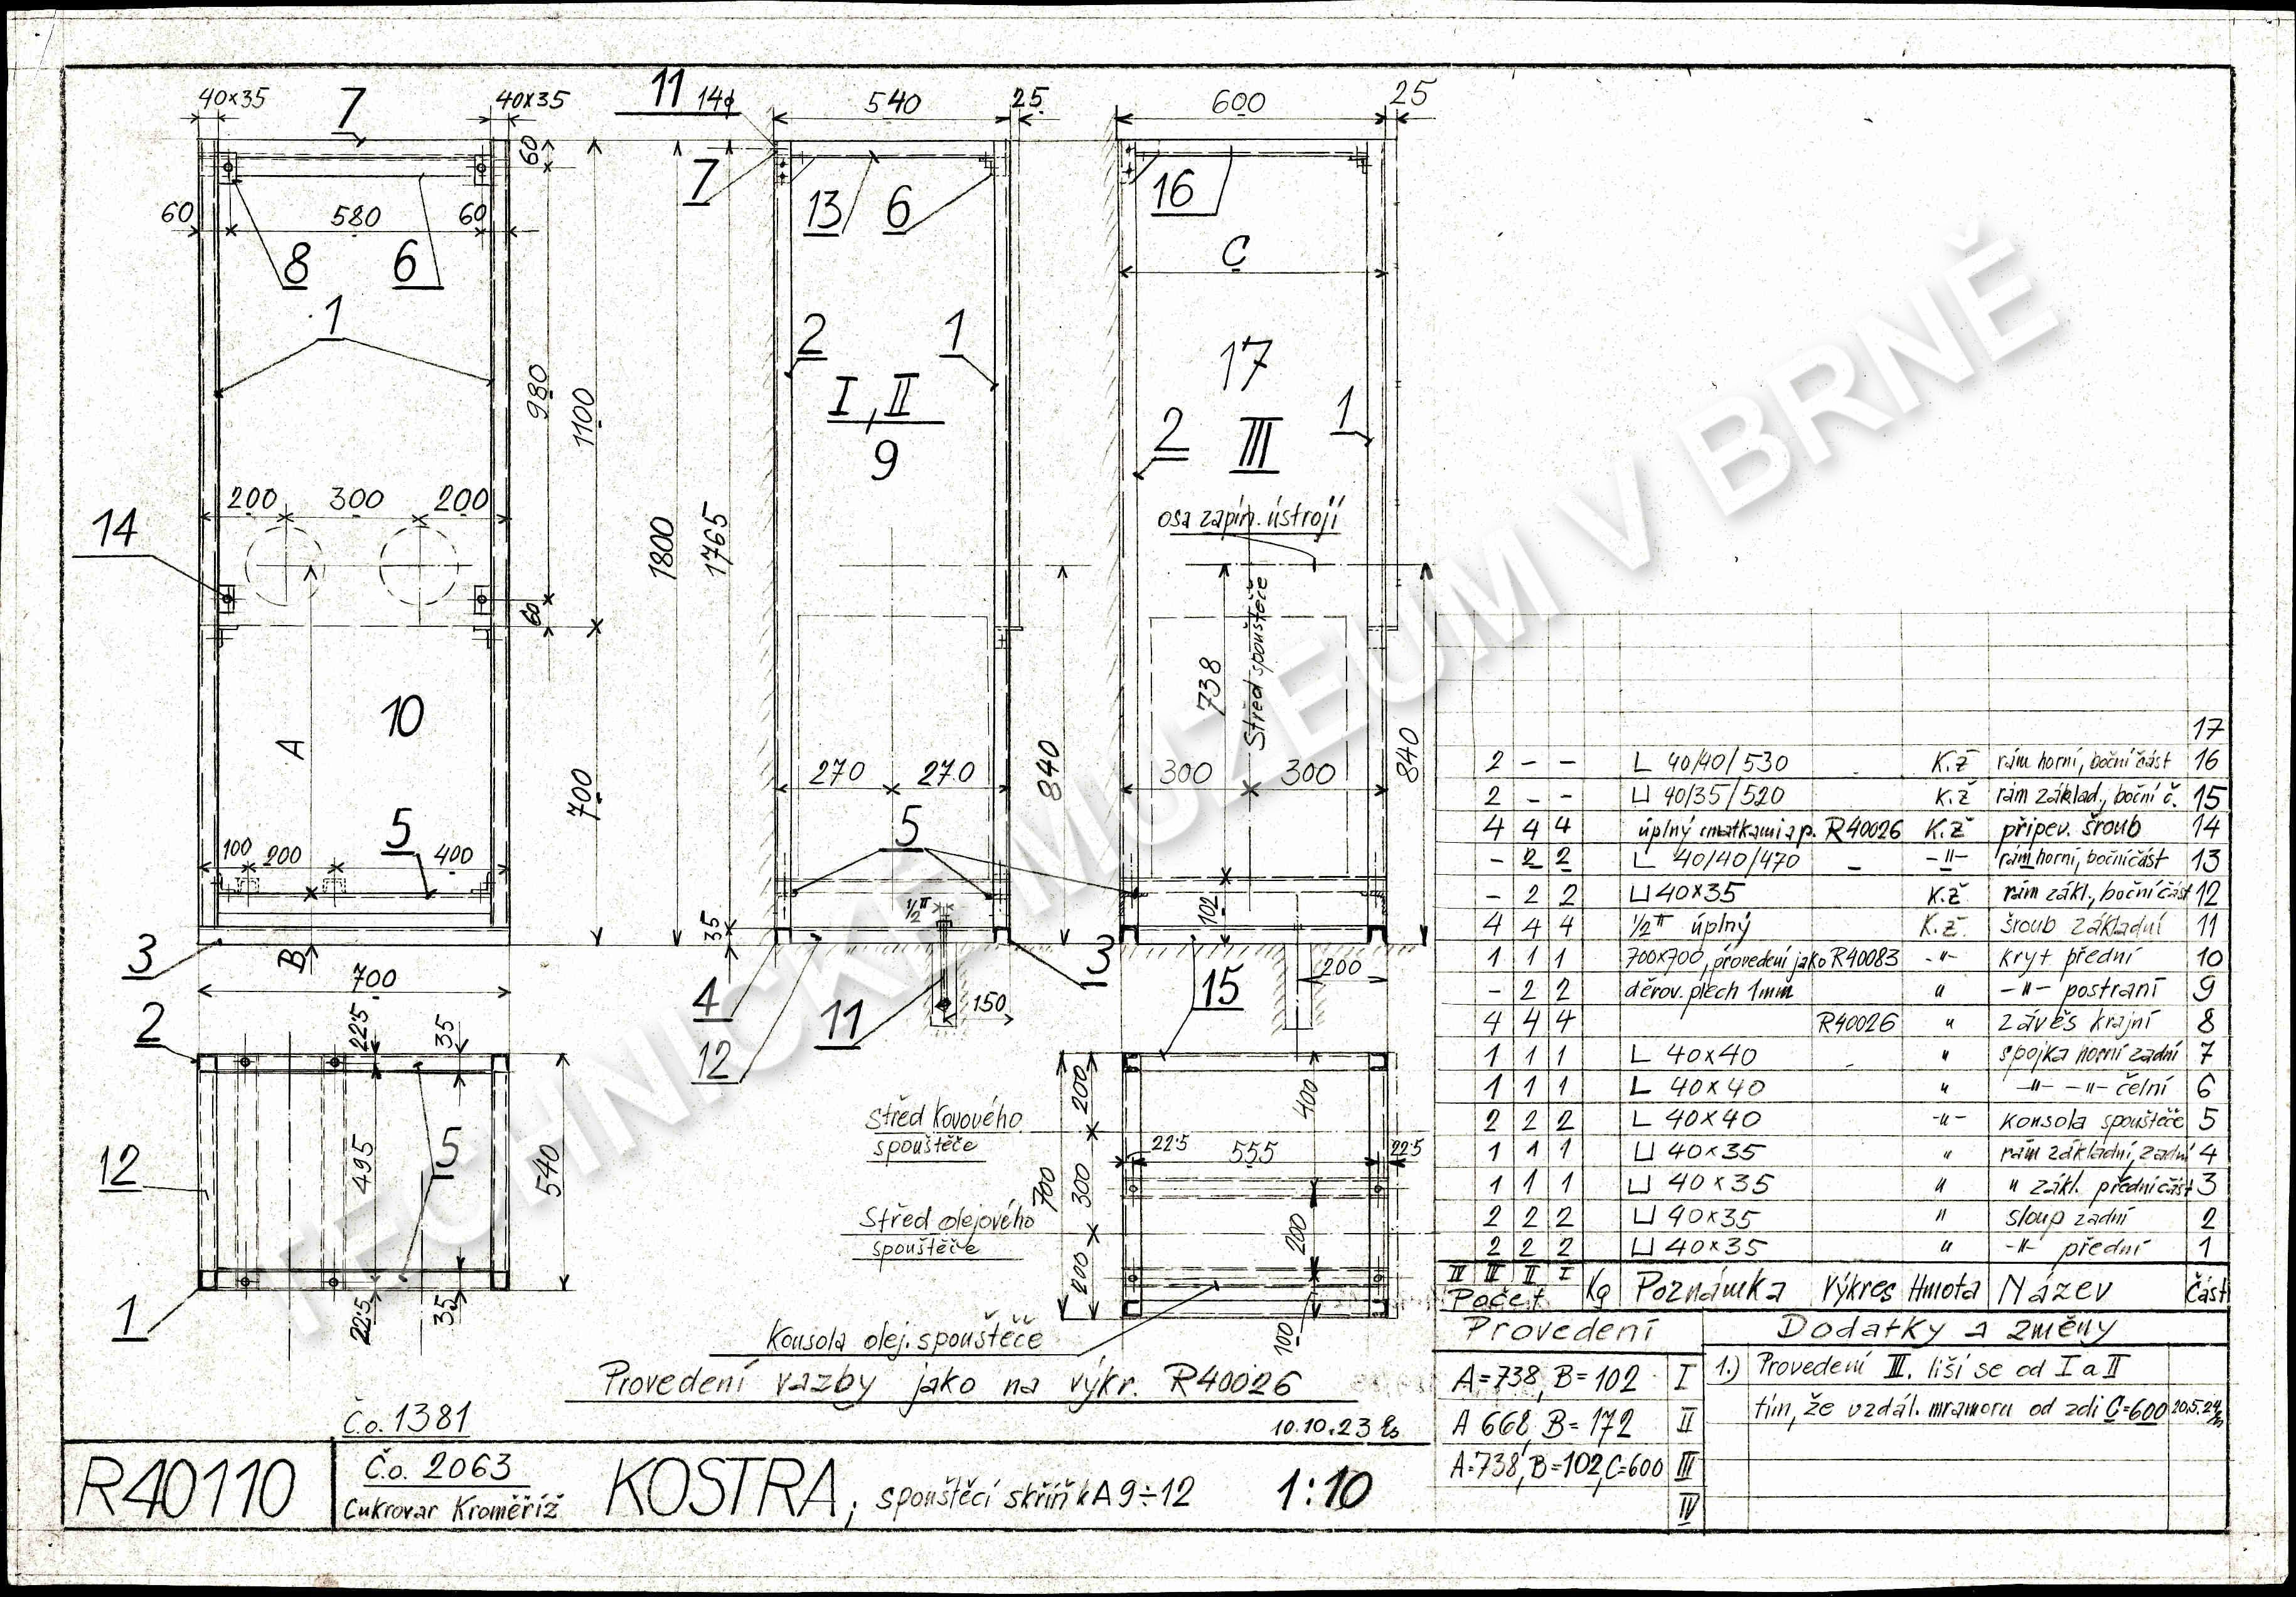 40x35
7
40x35
11 14ϕ
540
25
600
25
60
60
580
60
8
6
1
980
1100
7
13
6
16
C
2
1
I, II
9
17
2
III
1
osa zapín. ústrojí
14
200
300
200
60
1800
1765
738
Střed spouštěče
10
A
700
270
270
840
300
300
840
5
5
100
200
400
35
1/2"
102
3
B
700
4
11
150
13
15
200
12
2
225
35
12
495
5
540
1
225
35
Střed kovového
spouštěče
Střed olejového
spouštěče
700
200
300
200
22·5
555
22·5
400
200
100
Konsola olej. spouštěče
Provedení vazby jako na výkr. R40026
10.10.23
17
2 - - L 40/40/530 K.ž rám horní, boční část 16
2 - - ⊔ 40/35/520 K.ž rám základ., boční č. 15
4 4 4 úplný s matkami a p. R40026 K.ž připev. šroub 14
- 2 2 L 40/40/470 - -"- rám horní, boční část 13
- 2 2 ⊔ 40x35 K.ž rám zákl., boční část 12
4 4 4 1/2" úplný K.ž. šroub základní 11
1 1 1 700x700, provedení jako R40083 -"- kryt přední 10
- 2 2 děrov. plech 1mm " -"- postraní 9
4 4 4 R40026 " závěs krajní 8
1 1 1 L 40x40 " spojka horní zadní 7
1 1 1 L 40x40 " -"- -"- čelní 6
2 2 2 L 40x40 -"- konsola spouštěče 5
1 1 1 ⊔ 40x35 " rám základní, zadní 4
1 1 1 ⊔ 40x35 " " zákl. přední část 3
2 2 2 ⊔ 40x35 " sloup zadní 2
2 2 2 ⊔ 40x35 " -"- přední 1
IV III II I
Počet Kg Poznámka Výkres Hmota Název Část
Provedení
Dodatky a změny
A=738, B=102 I
A 668, B=172 II
A=738, B=102, C=600 III
IV
1.) Provedení III. liší se od I a II
tím, že vzdál. mramoru od zdi C=600 20.5.24
R40110
Č.o. 1381
Č.o. 2063
Cukrovar Kroměříž
KOSTRA, spouštěcí skříň k A9÷12
1:10
TECHNICKÉ MUZEUM V BRNĚ